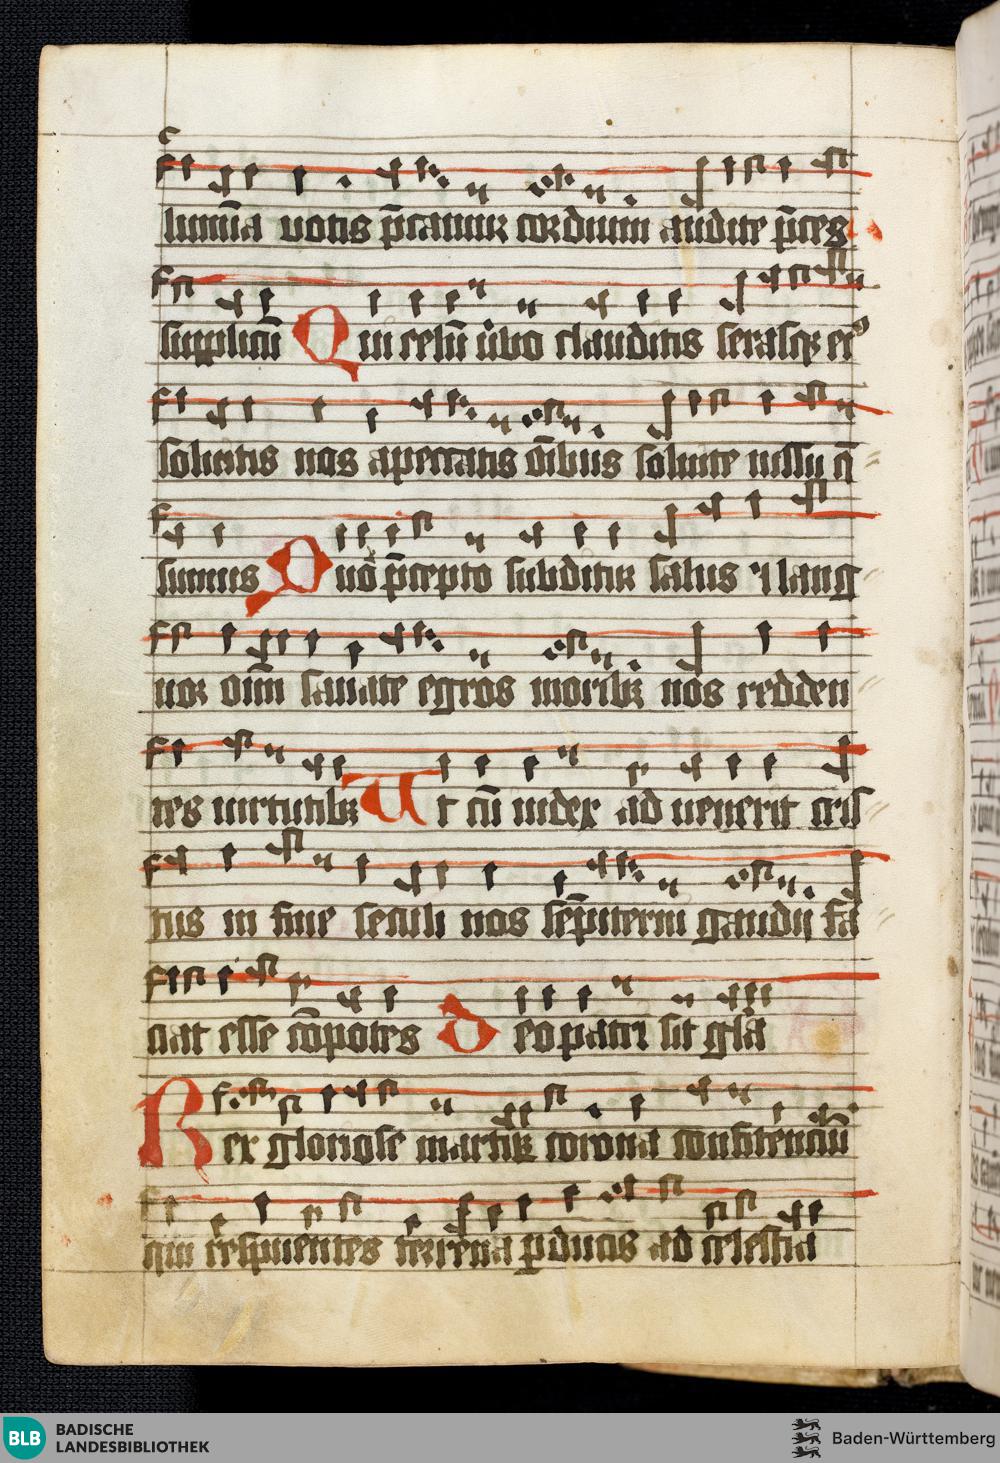 lumīa uotis p̄camur cordium audite p̄ces
supplicū Qui celū ūbo clauditis serasq; ei9
soluitis nos a peccatis oībus soluite iussu q̄
sumus Quō p̄cepto subditur salus ⁊ lang
uor oīm sanate egros morib; nos redden
tes uirtutib; Ut cū iudex aduenerit cris
tus in fine seculi nos sēpiterni gaudii fa
ciat esse cōpotes Deo patri sit glā
Rex gloriose martirū corona confitenciū
qui respuentes terrena pducis ad celestia
BLB BADISCHE
LANDESBIBLIOTHEK
Baden-Württemberg